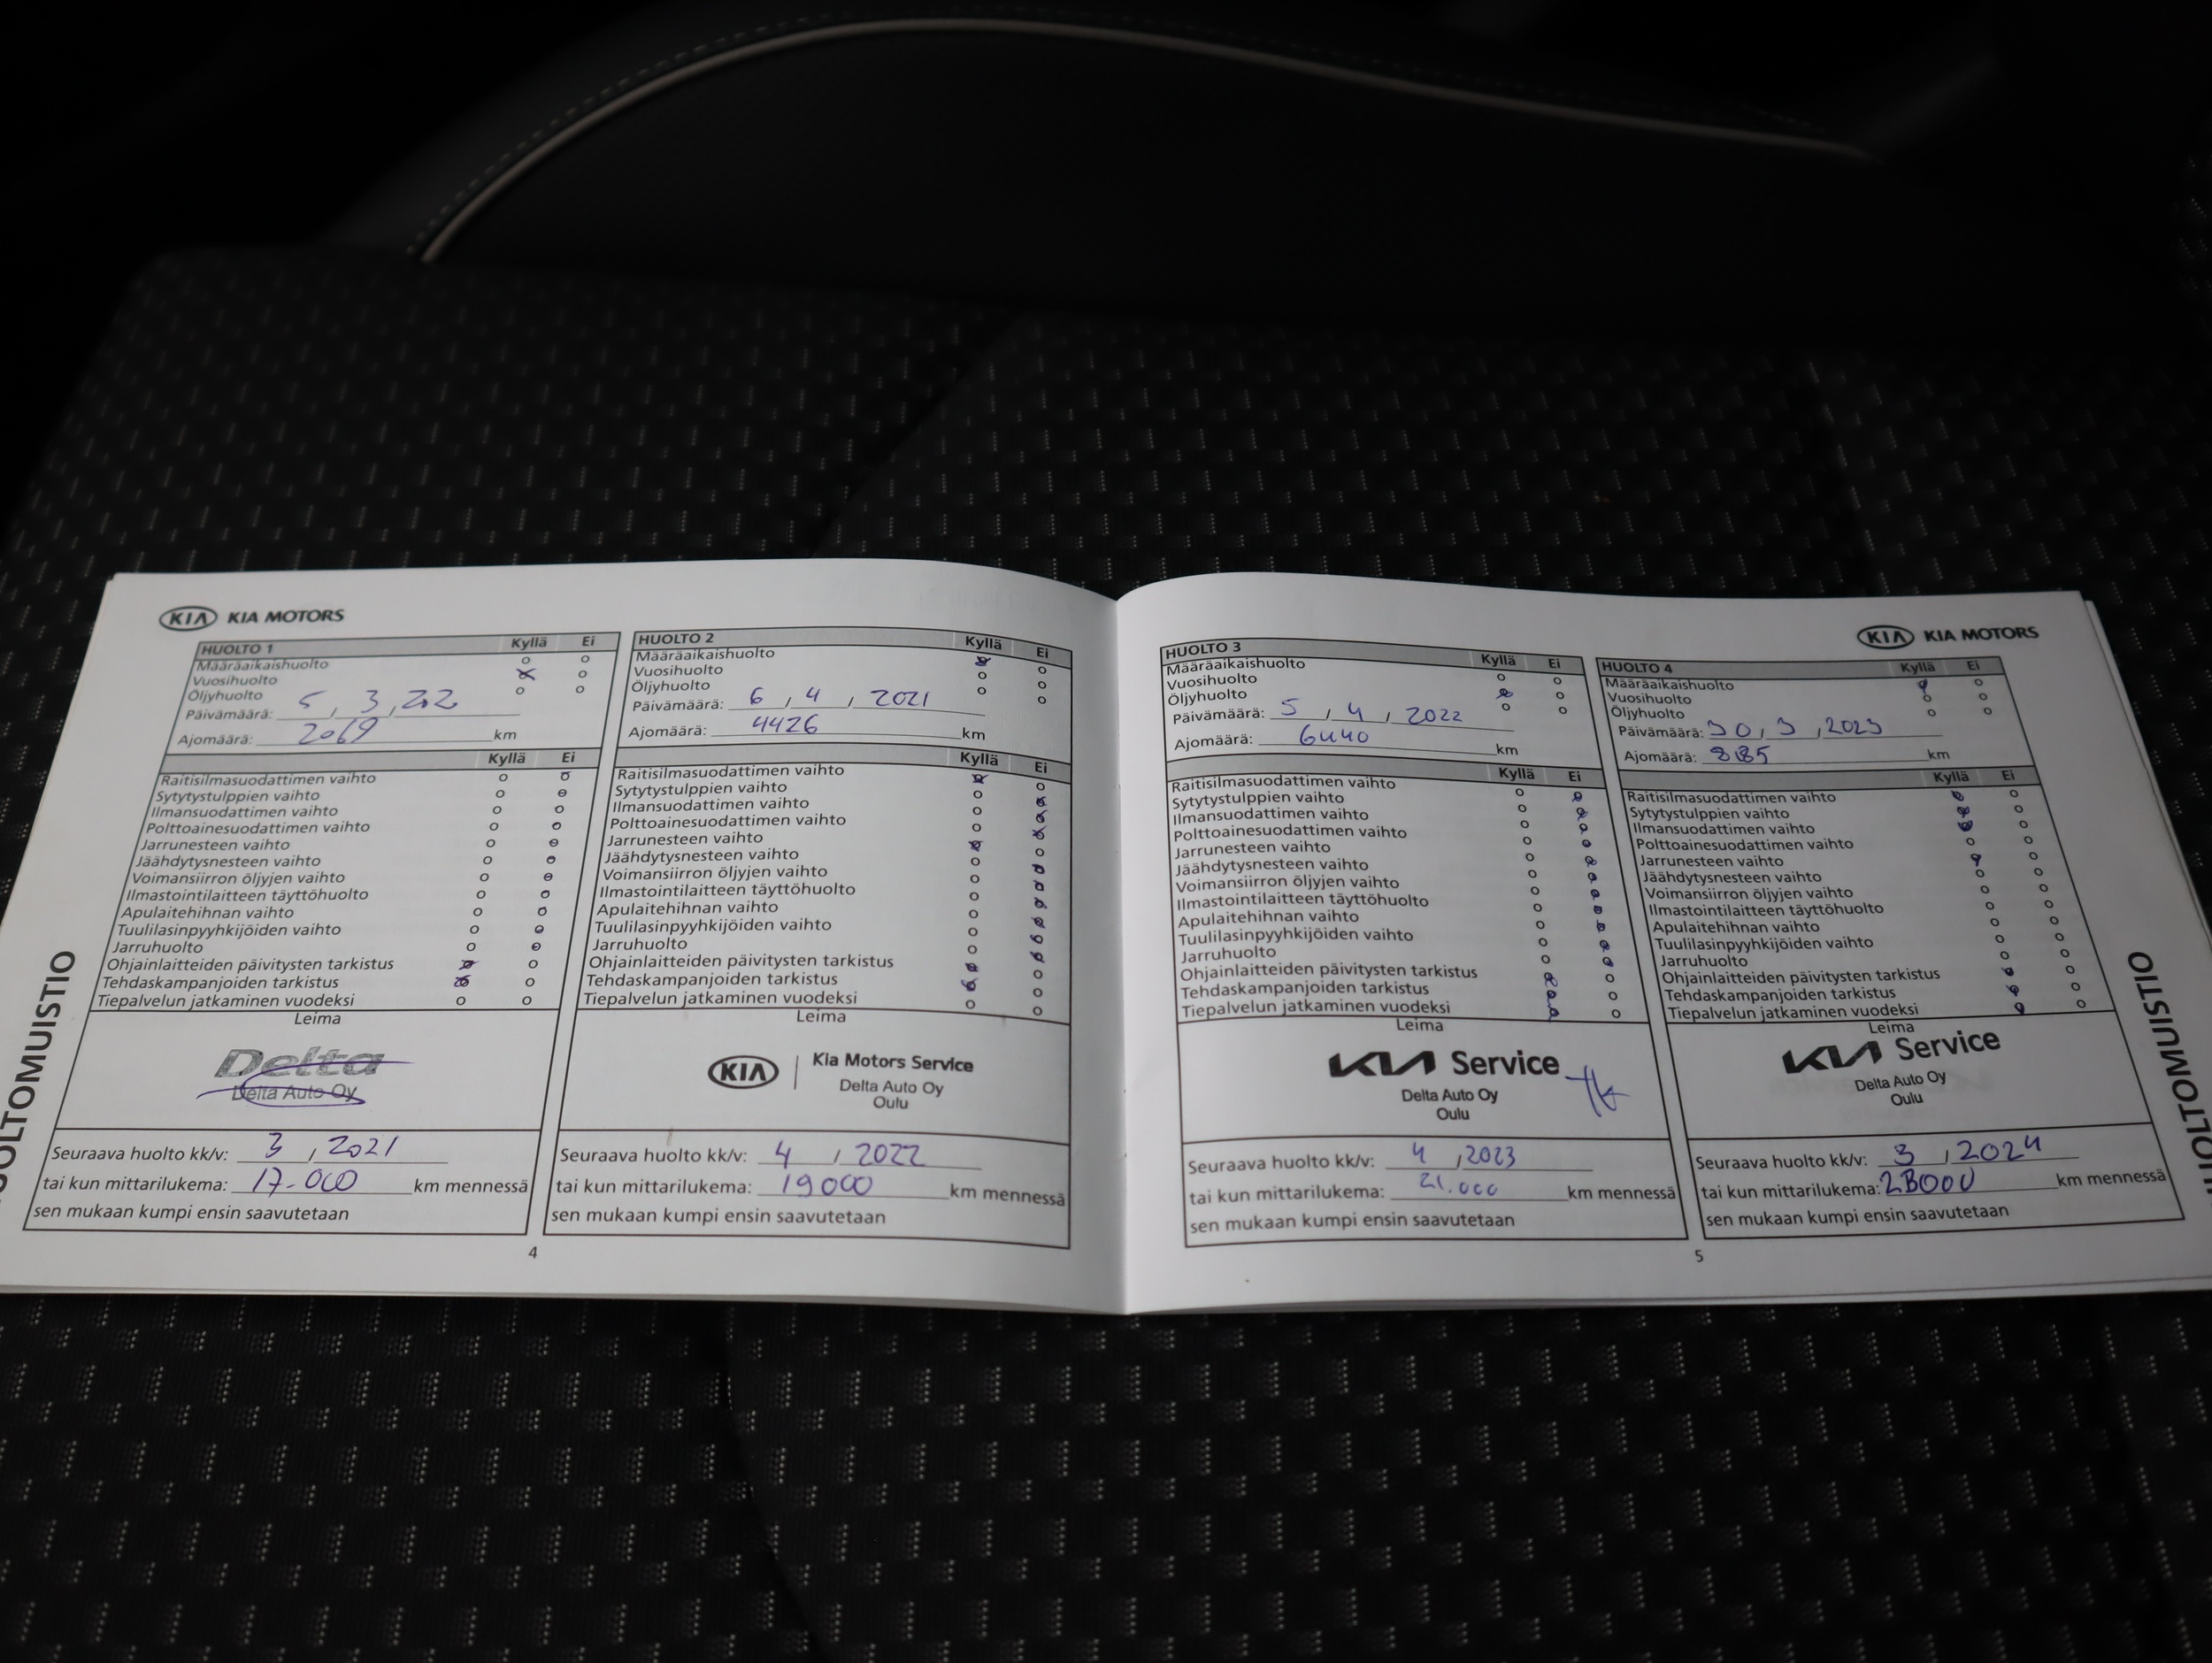 KIA KIA MOTORS
HUOLTO 1 Kyllä Ei
Määräaikaishuolto
Vuosihuolto
Öljyhuolto
Päivämäärä: 5, 3,
Ajomäärä: 2069 km
Kyllä Ei
Raitisilmasuodattimen vaihto
Sytytystulppien vaihto
Ilmansuodattimen vaihto
Polttoainesuodattimen vaihto
Jarrunesteen vaihto
Jäähdytysnesteen vaihto
Voimansiirron öljyjen vaihto
Ilmastointilaitteen täyttöhuolto
Apulaitehihnan vaihto
Tuulilasinpyyhkijöiden vaihto
Jarruhuolto
Ohjainlaitteiden päivitysten tarkistus
Tehdaskampanjoiden tarkistus
Tiepalvelun jatkaminen vuodeksi
Leima
Delta
Delta Auto Oy
Seuraava huolto kk/v: 3, 2021
tai kun mittarilukema: 17.000 km mennessä
sen mukaan kumpi ensin saavutetaan
HUOLTO 2 Kyllä Ei
Määräaikaishuolto
Vuosihuolto
Öljyhuolto
Päivämäärä: 6, 4, 2021
Ajomäärä: 4426 km
Kyllä Ei
Raitisilmasuodattimen vaihto
Sytytystulppien vaihto
Ilmansuodattimen vaihto
Polttoainesuodattimen vaihto
Jarrunesteen vaihto
Jäähdytysnesteen vaihto
Voimansiirron öljyjen vaihto
Ilmastointilaitteen täyttöhuolto
Apulaitehihnan vaihto
Tuulilasinpyyhkijöiden vaihto
Jarruhuolto
Ohjainlaitteiden päivitysten tarkistus
Tehdaskampanjoiden tarkistus
Tiepalvelun jatkaminen vuodeksi
Leima
KIA Kia Motors Service
Delta Auto Oy
Oulu
Seuraava huolto kk/v: 4, 2022
tai kun mittarilukema: 19000 km mennessä
sen mukaan kumpi ensin saavutetaan
4
KIA KIA MOTORS
HUOLTO 3 Kyllä Ei
Määräaikaishuolto
Vuosihuolto
Öljyhuolto
Päivämäärä: 5, 4, 2022
Ajomäärä: 6440 km
Kyllä Ei
Raitisilmasuodattimen vaihto
Sytytystulppien vaihto
Ilmansuodattimen vaihto
Polttoainesuodattimen vaihto
Jarrunesteen vaihto
Jäähdytysnesteen vaihto
Voimansiirron öljyjen vaihto
Ilmastointilaitteen täyttöhuolto
Apulaitehihnan vaihto
Tuulilasinpyyhkijöiden vaihto
Jarruhuolto
Ohjainlaitteiden päivitysten tarkistus
Tehdaskampanjoiden tarkistus
Tiepalvelun jatkaminen vuodeksi
Leima
KIA Service
Delta Auto Oy
Oulu
Seuraava huolto kk/v: 4, 2023
tai kun mittarilukema: 21.000 km mennessä
sen mukaan kumpi ensin saavutetaan
HUOLTO 4 Kyllä Ei
Määräaikaishuolto
Vuosihuolto
Öljyhuolto
Päivämäärä: 30, 3, 2023
Ajomäärä: km
Kyllä Ei
Raitisilmasuodattimen vaihto
Sytytystulppien vaihto
Ilmansuodattimen vaihto
Polttoainesuodattimen vaihto
Jarrunesteen vaihto
Jäähdytysnesteen vaihto
Voimansiirron öljyjen vaihto
Ilmastointilaitteen täyttöhuolto
Apulaitehihnan vaihto
Tuulilasinpyyhkijöiden vaihto
Jarruhuolto
Ohjainlaitteiden päivitysten tarkistus
Tehdaskampanjoiden tarkistus
Tiepalvelun jatkaminen vuodeksi
Leima
KIA Service
Delta Auto Oy
Oulu
Seuraava huolto kk/v: 3, 2024
tai kun mittarilukema: 23000 km mennessä
sen mukaan kumpi ensin saavutetaan
5